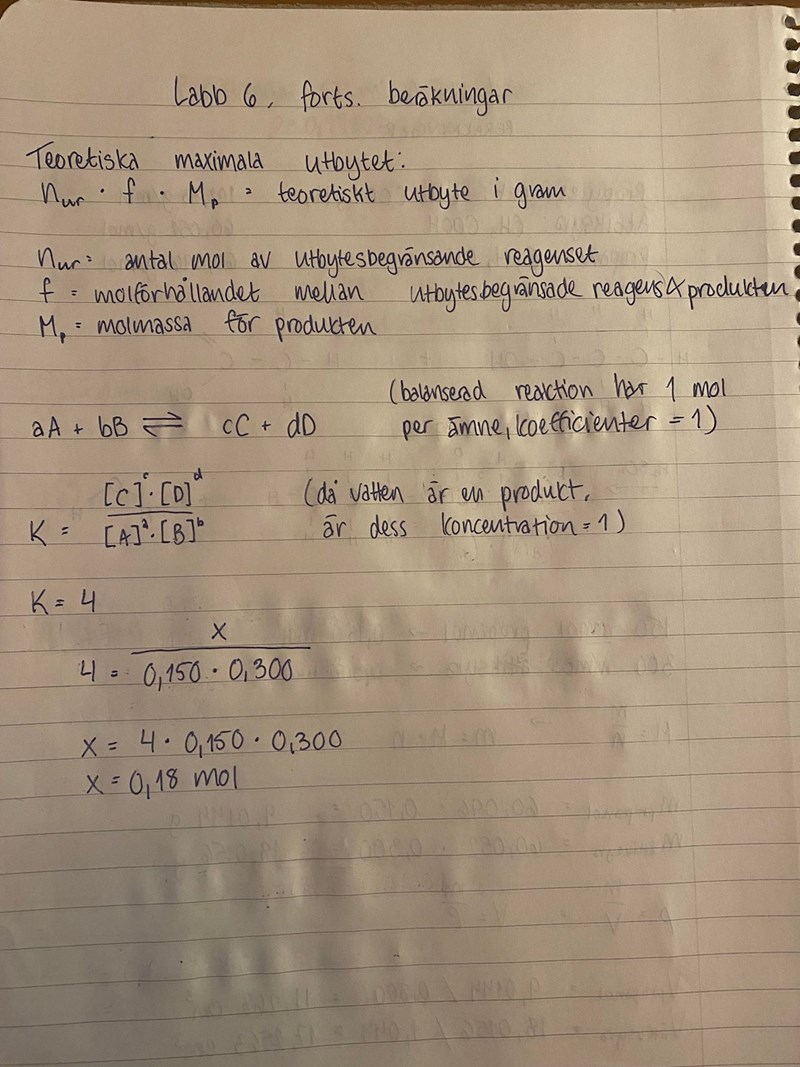 Labb 6, forts. beräkningar
Teoretiska maximala utbytet:
nur · f · Mp = teoretiskt utbyte i gram
nur = antal mol av utbytesbegränsande reagenset
f = molförhållandet mellan utbytesbegränsade reagens & produkten
Mp = molmassa för produkten
(balanserad reaktion har 1 mol
aA + bB ⇌ cC + dD per ämne, koefficienter = 1)
[C]^c · [D]^d (då vatten är en produkt,
K = [A]^a · [B]^b är dess koncentration = 1)
K = 4
x
4 = 0,150 · 0,300
x = 4 · 0,150 · 0,300
x = 0,18 mol